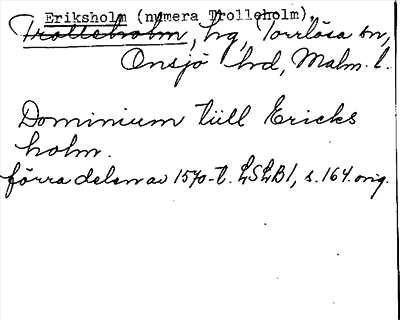 Eriksholm (numera Trolleholm)
Trolleholm, hg, Torrlösa sn,
Onsjö hd, Malm. l.
Dominium tüll Ericks
holm.
förra delen av 1570-t. LSLB1, s. 164. orig.